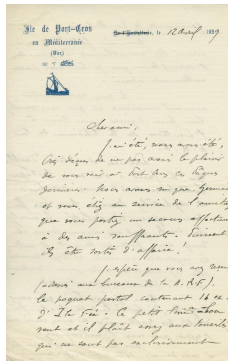 Ile de Port-Cros
en Méditerranée
(Var)
le, 12 Avril 1939
Cher ami,
J'ai été, nous avons été,
très déçus de ne pas avoir le plaisir
de vous voir à Port-Cros ces
derniers. Nous avons su que Germaine
et vous étiez au service de l'amitié
que vous portiez un secours affectueux
à des amis souffrants.
ils être sortis d'affaire!
J'espère que vous avez reçu
(adressé aux bureaux de la N.R.F.),
le paquet postal contenant 14 ex.
d'. Le petit
vent et il plaît assez aux
qui ne sont pas exclusivement